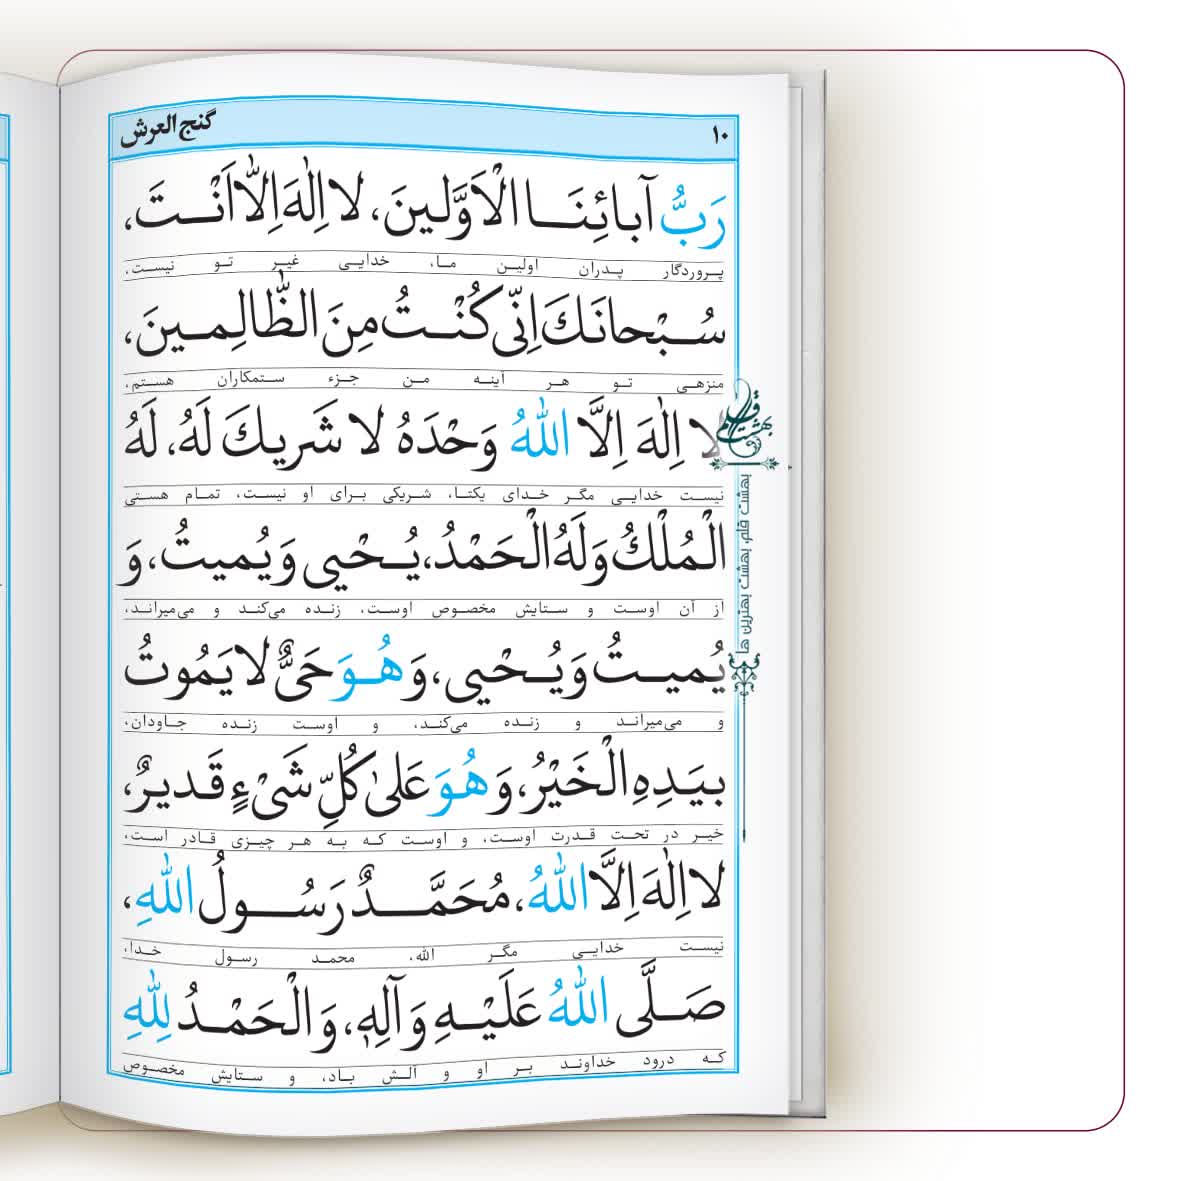 ۱۰ گنج العرش
رَبُّ آبائِنَـا الْاَوَّلینَ، لا اِلٰهَ اِلّا اَنْـتَ،
پـروردگار پـدران اولیـن مـا، خدایـی غیـر تـو نیسـت،
سُـبْحانَكَ اِنّی كُنْـتُ مِنَ الظّالِمـینَ،
منزهـی تـو هـر آینـه مـن جـزء سـتمکاران هسـتم،
لا اِلٰهَ اِلَّا اللهُ وَحْدَهُ لا شَریكَ لَهُ، لَهُ
نیسـت خدایـی مگـر خـدای یکتـا، شـریکی بـرای او نیسـت، تمـام هستـی
الْمُلْكُ وَلَهُ الْحَمْدُ، یُـحْیی وَ یُمیتُ، وَ
از آن اوسـت و سـتایش مخصـوص اوسـت، زنـده می‌کنـد و می‌میرانـد،
یُمیـتُ وَ یُـحْیی، وَ هُـوَ حَیٌّ لا یَمُوتُ
و می‌میرانـد و زنـده می‌کنـد، و اوسـت زنـده جـاودان،
بِیَـدِهِ الْخَیْرُ، وَ هُوَ عَلیٰ كُلِّ شَیْءٍ قَدیرٌ،
خیـر در تحـت قـدرت اوسـت، و اوسـت کـه بـه هـر چیـزی قـادر اسـت،
لا اِلٰهَ اِلَّا اللهُ، مُحَمَّـدٌ رَسُـولُ اللهِ،
نیسـت خدایـی مگـر الله، محمـد رسـول خـدا،
صَـلَّی اللهُ عَلَیْـهِ وَ آلِهٖ، وَ الْحَمْـدُ لِلّٰهِ
کـه درود خداونـد بـر او و آلـش بـاد، و سـتایش مخصـوص
بهشت قلم
بهشت قلم، بهشت بهترین ها